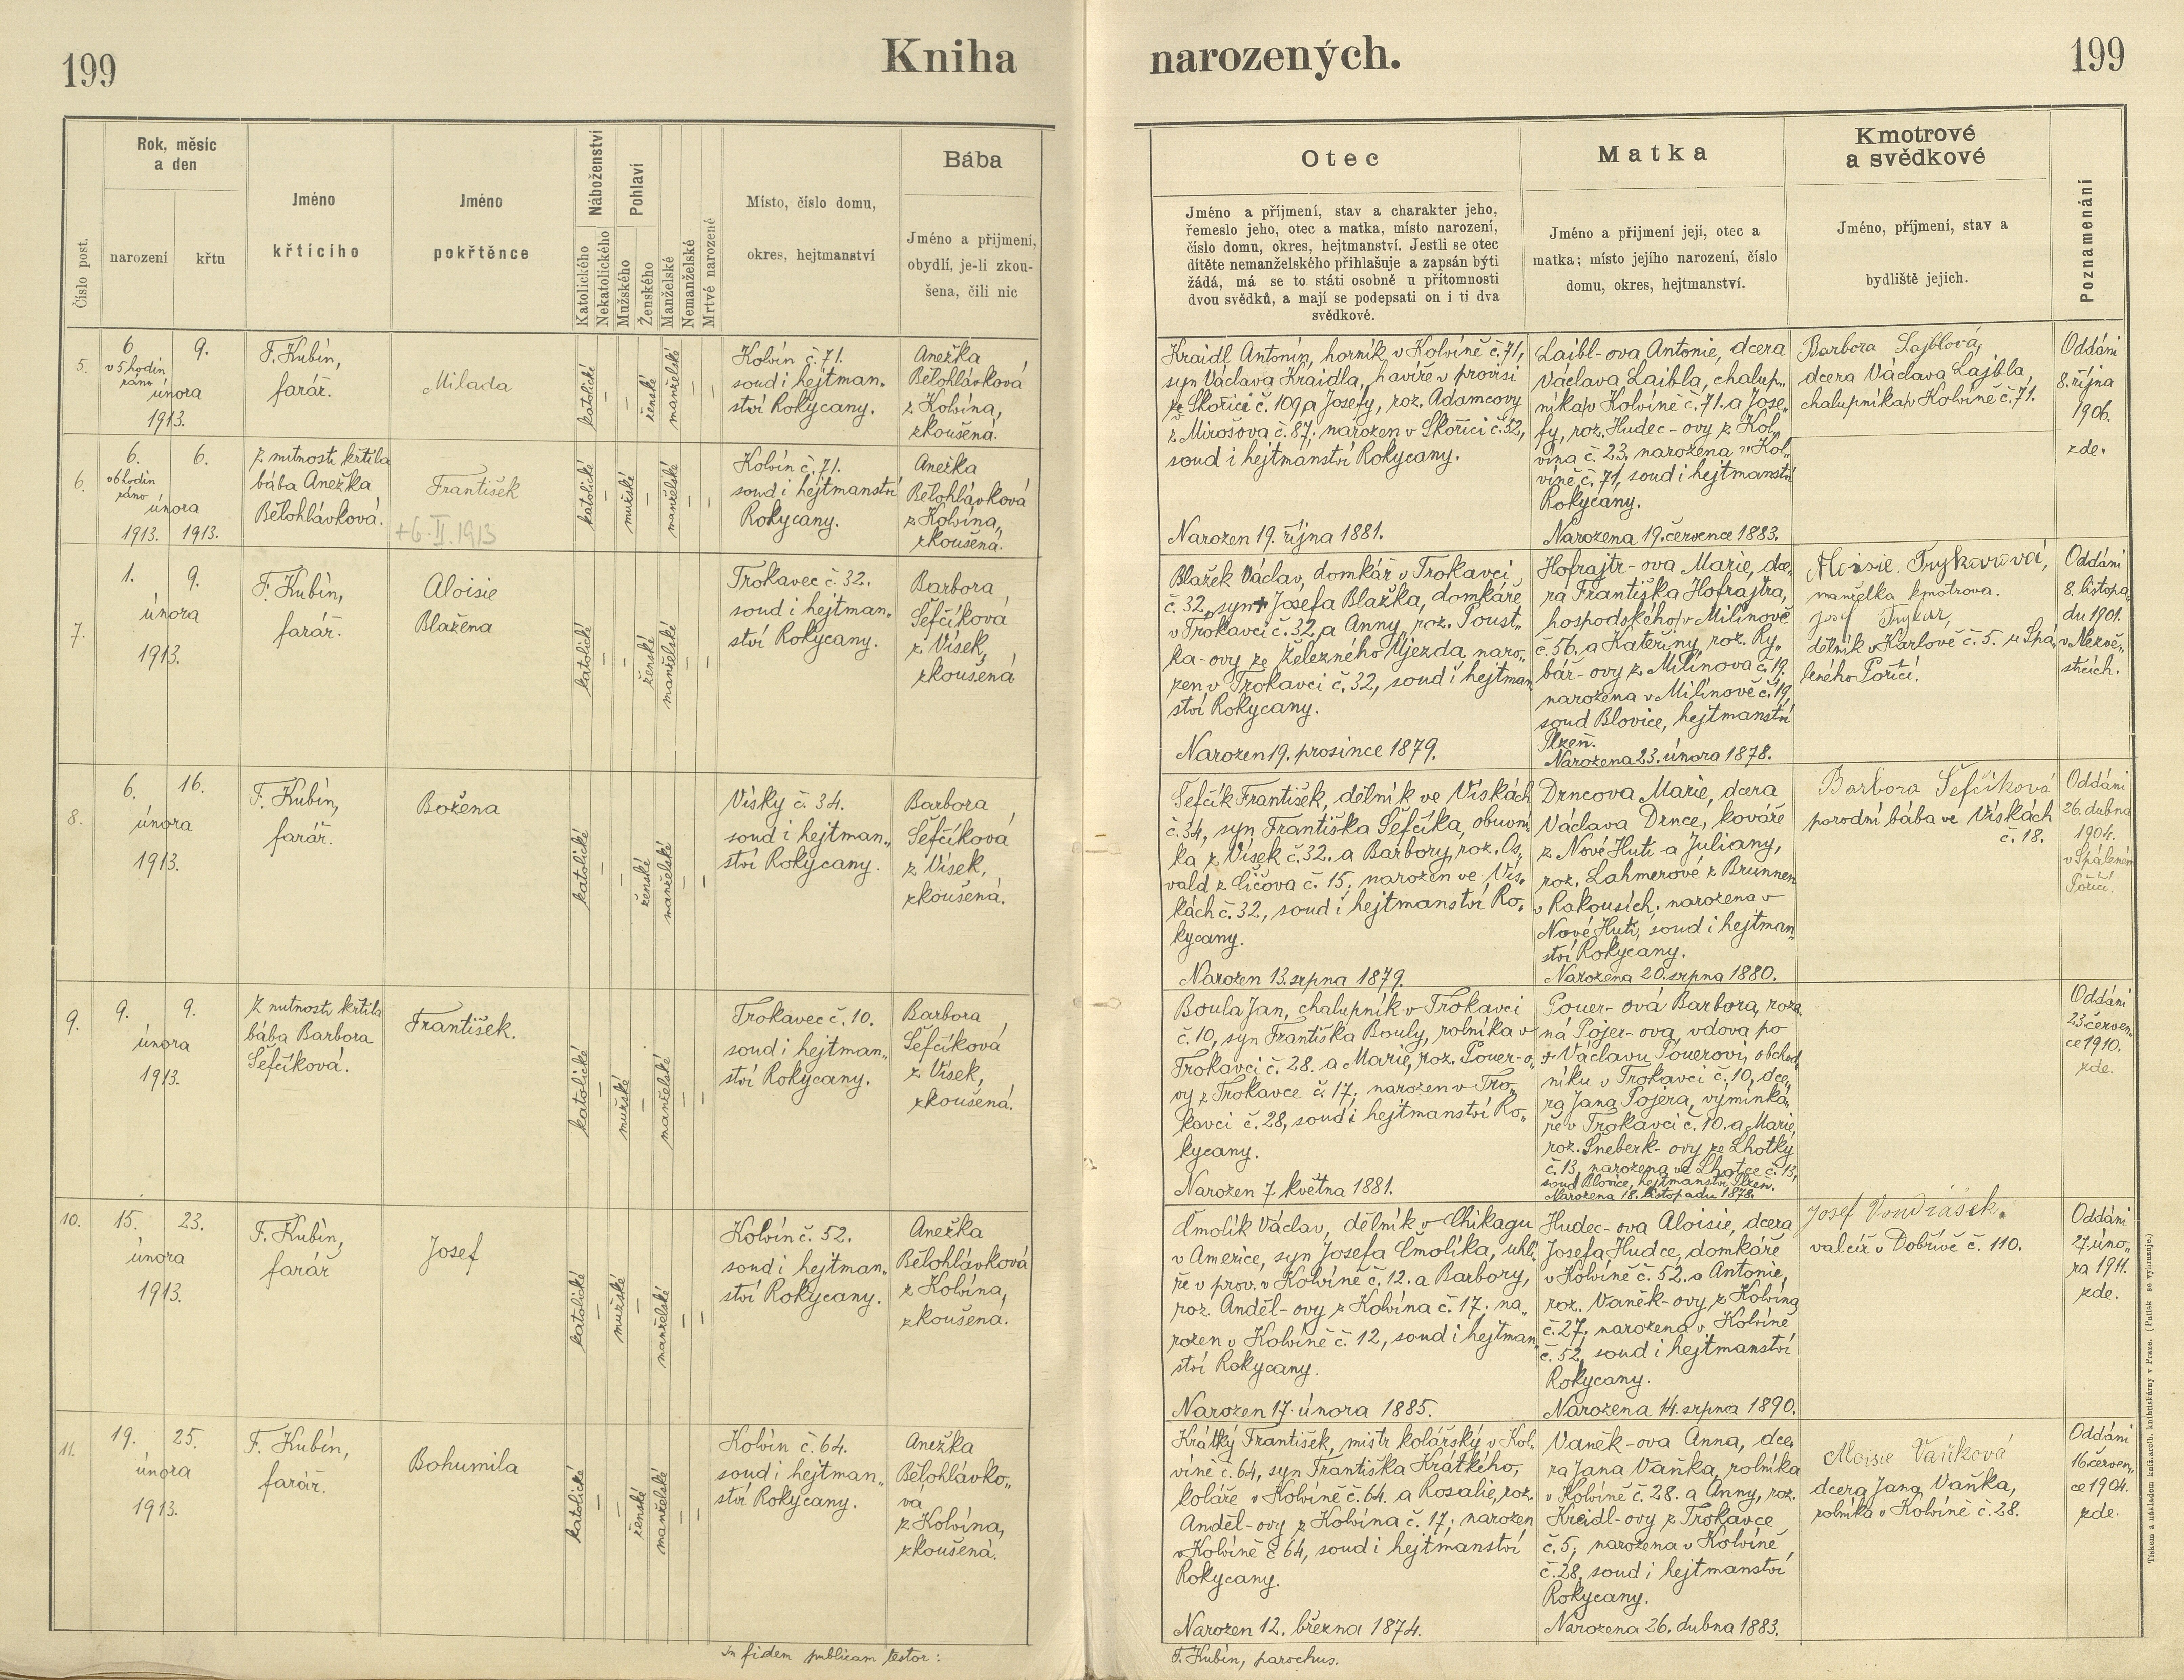 199
Kniha
narozených.
199
Číslo post.
Rok, měsíc
a den
narození
křtu
Jméno
křticího
Jméno
pokřtěnce
Náboženství
Katolického
Nekatolického
Pohlaví
Mužského
Ženského
Manželské
Nemanželské
Mrtvé narozené
Místo, číslo domu,
okres, hejtmanství
Bába
Jméno a přijmení,
obydlí, je-li zkou-
šena, čili nic
Otec
Jméno a příjmení, stav a charakter jeho,
řemeslo jeho, otec a matka, místo narození,
číslo domu, okres, hejtmanství. Jestli se otec
dítěte nemanželského přihlašuje a zapsán býti
žádá, má se to státi osobně u přítomnosti
dvou svědků, a mají se podepsati on i ti dva
svědkové.
Matka
Jméno a přijmení její, otec a
matka; místo jejího narození, číslo
domu, okres, hejtmanství.
Kmotrové
a svědkové
Jméno, příjmení, stav a
bydliště jejich.
Poznamenání
5.
6. 9.
v 5 hodin
ráno
února
1913.
F. Kubín,
farář.
Milada
katolické
–
–
ženské
manželské
–
–
Kolvín č. 71.
soud i hejtman„
ství Rokycany.
Anežka
Bělohlávková
z Kolvína,
zkoušená.
Kraidl Antonín, horník v Kolvíně č. 71,
syn Václava Kraidla, havíře v provisi
ze Skořici č. 109 a Josefy, roz. Adamcovy
z Mirošova č. 87; narozen v Skořici č. 52,
soud i hejtmanství Rokycany.
Narozen 19. října 1881.
Laibl-ova Antonie, dcera
Václava Laibla, chalup„
níka v Kolvíně č. 71. a Jose„
fy, roz. Hudec-ovy z Kol„
vína č. 23, narozena v Kol„
víně č. 71, soud i hejtmanství
Rokycany.
Narozena 19. července 1883.
Barbora Lajblová,
dcera Václava Lajbla,
chalupníka v Kolvíně č. 71.
Oddáni
8. října
1906.
zde.
6.
6. 6.
v 6 hodin
ráno
února
1913. 1913.
Z nutnosti křtila
bába Anežka
Bělohlávková.
František
+6. II. 1913
katolické
–
mužské
–
manželské
–
–
Kolvín č. 71.
soud i hejtmanství
Rokycany.
Anežka
Bělohlávková
z Kolvína,
zkoušená.
7.
1. 9.
února
1913.
F. Kubín,
farář.
Aloisie
Blažena
katolické
–
–
ženské
manželské
–
–
Trokavec č. 32.
soud i hejtman„
ství Rokycany.
Barbora
Šefčíková
z Vísek,
zkoušená
Blažek Václav, domkář v Trokavci
č. 32, syn + Josefa Blažka, domkáře
v Trokavci č. 32, a Anny, roz. Poust„
ka-ovy ze Železného Újezda, naro„
zen v Trokavci č. 32, soud i hejtman
ství Rokycany.
Narozen 19. prosince 1879.
Hofrajtr-ova Marie, dce„
ra Františka Hofrajtra,
hospodského v Milínově
č. 56. a Kateřiny, roz. Ry„
bář-ovy z Milínova č. 19.
narozena v Milínově č. 19,
soud Blovice, hejtmanství
Plzeň.
Narozena 23. února 1878.
Aloisie
manželka kmotrova.
Josef
dělník v Karlově č. 5. u Spá„
leného Poříčí.
Oddáni
8. listopa„
du 1901.
v Nezvě„
sticích.
8.
6. 16.
února
1913.
F. Kubín,
farář.
Božena
katolické
–
–
ženské
manželské
–
–
Vísky č. 34.
soud i hejtman„
ství Rokycany.
Barbora
Šefčíková
z Vísek,
zkoušená.
Šefčík František, dělník ve Vískách
č. 34, syn Františka Šefčíka, obuvní
ka z Vísek č. 32. a Barbory, roz. Os„
vald z Číčova č. 15; narozen ve Vís„
kách č. 32, soud i hejtmanství Ro„
kycany.
Narozen 13. srpna 1879.
Drncova Marie, dcera
Václava Drnce, kováře
z Nové Huti a Juliany,
roz. Lahmerové z Brunnen
v Rakousích; narozena v
Nové Huti, soud i hejtman
ství Rokycany.
Narozena 20. srpna 1880.
Barbora Šefčíková
porodní bába ve Vískách
č. 18.
Oddáni
26. dubna
1904.
v Spáleném
Poříčí.
9.
9. 9.
února
1913.
Z nutnosti křtila
bába Barbora
Šefčíková.
František.
katolické
–
mužské
–
manželské
–
–
Trokavec č. 10.
soud i hejtman„
ství Rokycany.
Barbora
Šefčíková
z Vísek,
zkoušená.
Boula Jan, chalupník v Trokavci
č. 10, syn Františka Bouly, rolníka v
Trokavci č. 28. a Marie, roz. Pouer-o„
vy z Trokavce č. 17; narozen v Tro„
kavci č. 28, soud i hejtmanství Ro„
kycany.
Narozen 7 května 1881.
Pouer-ová Barbora, roze
ná Pojer-ova, vdova po
+ Václavu Pouerovi, obchod
níku v Trokavci č. 10, dce„
ra Jana Pojera, výminká„
ře v Trokavci č. 10. a Marie,
roz. Šneberk-ovy ze Lhotky
č. 13, narozena ve Lhotce č. 13,
soud Blovice, hejtmanství Plzeň.
Narozena 18. listopadu 1878.
Oddáni
23 červen„
ce 1910.
zde.
10.
15. 23.
února
1913.
F. Kubín,
farář
Josef
katolické
–
mužské
–
manželské
–
–
Kolvín č. 52.
soud i hejtman„
ství Rokycany.
Anežka
Bělohlávková
z Kolvína,
zkoušená.
Čmolík Václav, dělník v Chikagu
v Americe, syn Josefa Čmolíka, uhlí
ře v prov. v Kolvíně č. 12. a Barbory,
roz. Anděl-ovy z Kolvína č. 17; na„
rozen v Kolvíně č. 12, soud i hejtman„
ství Rokycany.
Narozen 17. února 1885.
Hudec-ova Aloisie, dcera
Josefa Hudce, domkáře
v Kolvíně č. 52. a Antonie,
roz. Vaněk-ovy z Kolvína
č. 27; narozena v Kolvíně
č. 52, soud i hejtmanství
Rokycany.
Narozena 14. srpna 1890.
Josef Voudrášek.
valcíř v Dobřívě č. 110.
Oddáni
27. úno„
ra 1911.
zde.
11.
19. 25.
února
1913.
F. Kubín,
farář.
Bohumila
katolické
–
–
ženské
manželské
–
–
Kolvín č. 64.
soud i hejtman„
ství Rokycany.
Anežka
Bělohlávko„
va
z Kolvína,
zkoušená.
Krátký František, mistr kolářský v Kol„
víně č. 64, syn Františka Krátkého,
koláře v Kolvíně č. 64. a Rosalie, roz.
Anděl-ovy z Kolvína č. 17; narozen
v Kolvíně č 64, soud i hejtmanství
Rokycany.
Narozen 12. března 1874.
Vaněk-ova Anna, dce„
ra Jana Vaňka, rolníka
v Kolvíně č. 28. a Anny, roz.
Kreidl-ovy z Trokavce
č. 5; narozena v Kolvíně,
č. 28, soud i hejtmanství
Rokycany.
Narozena 26. dubna 1883.
Aloisie Vaňková
dcera Jana Vaňka,
rolníka v Kolvíně č. 28.
Oddáni
16 červen„
ce 1904.
zde.
In fidem publicam testor:
F. Kubín, parochus.
Tiskem a nákladem kníž. arcib. knihtiskárny v Praze. (Patisk se vyhrazuje.)